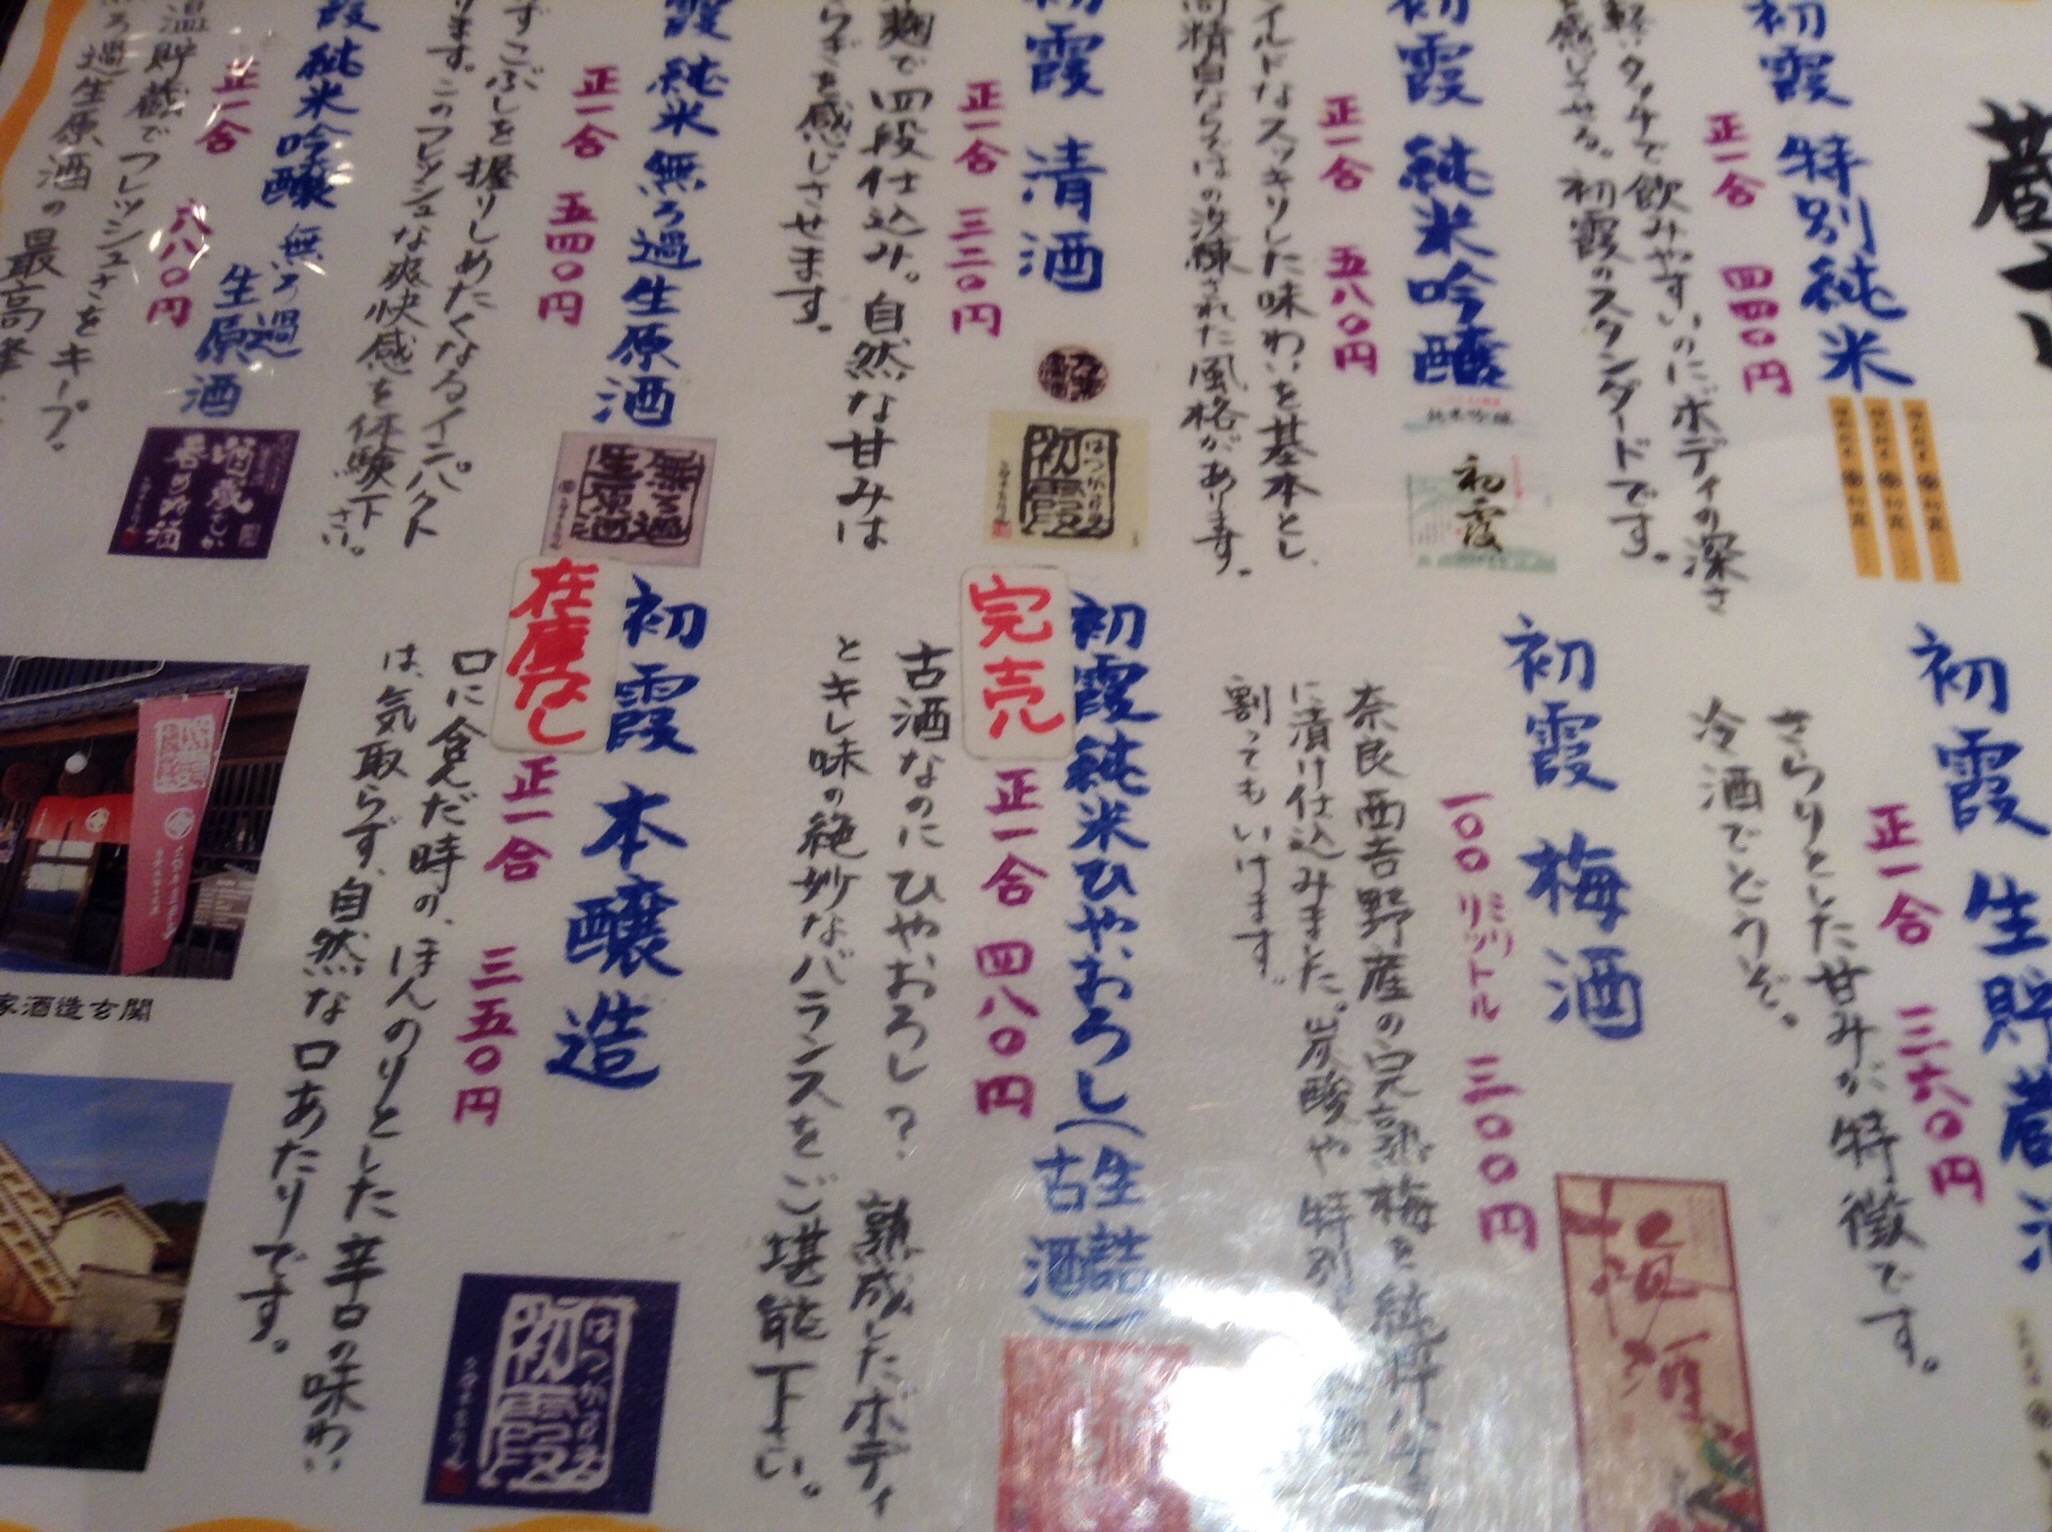 初霞 特別純米
正一合 四四〇円
軽いタッチで飲みやすいのにボディの深さ
を感じさせる。初霞のスタンダードです。
初霞 純米吟醸
正一合 五八〇円
イルドなスッキリした味わいを基本とし、
精白ならではの洗練された風格があります。
純米吟醸
初霞
初霞 清酒
正一合 三二〇円
麹で四段仕込み。自然な甘みは
らぎを感じさせます。
はつがすみ
初霞
霞 純米 無ろ過生原酒
正一合 五四〇円
ずこぶしを握りしめたくなるインパクト
ります。このフレッシュな爽快感を体験下さい。
無ろ過
生原酒
霞 純米吟醸 無ろ過
生原酒
正一合 六八〇円
温貯蔵でフレッシュさをキープ。
ろ過生原酒の最高
初霞 生貯蔵酒
正一合 三六〇円
さらりとした甘みが特徴です。
冷酒でどうぞ。
初霞 梅酒
一〇〇ミリリットル 三〇〇円
奈良西吉野産の完熟梅を純粋
に漬け仕込みました。炭酸や特別
割ってもいけます。
梅酒
初霞純米ひやおろし(生詰古酒)
完売
正一合 四八〇円
古酒なのにひやおろし? 熟成したボディ
とキレ味の絶妙なバランスをご堪能下さい。
初霞 本醸造
在庫なし
正一合 三五〇円
口に含んだ時の、ほんのりとした辛口の味わい
は、気取らず、自然な口あたりです。
はつがすみ
初霞
家酒造玄関